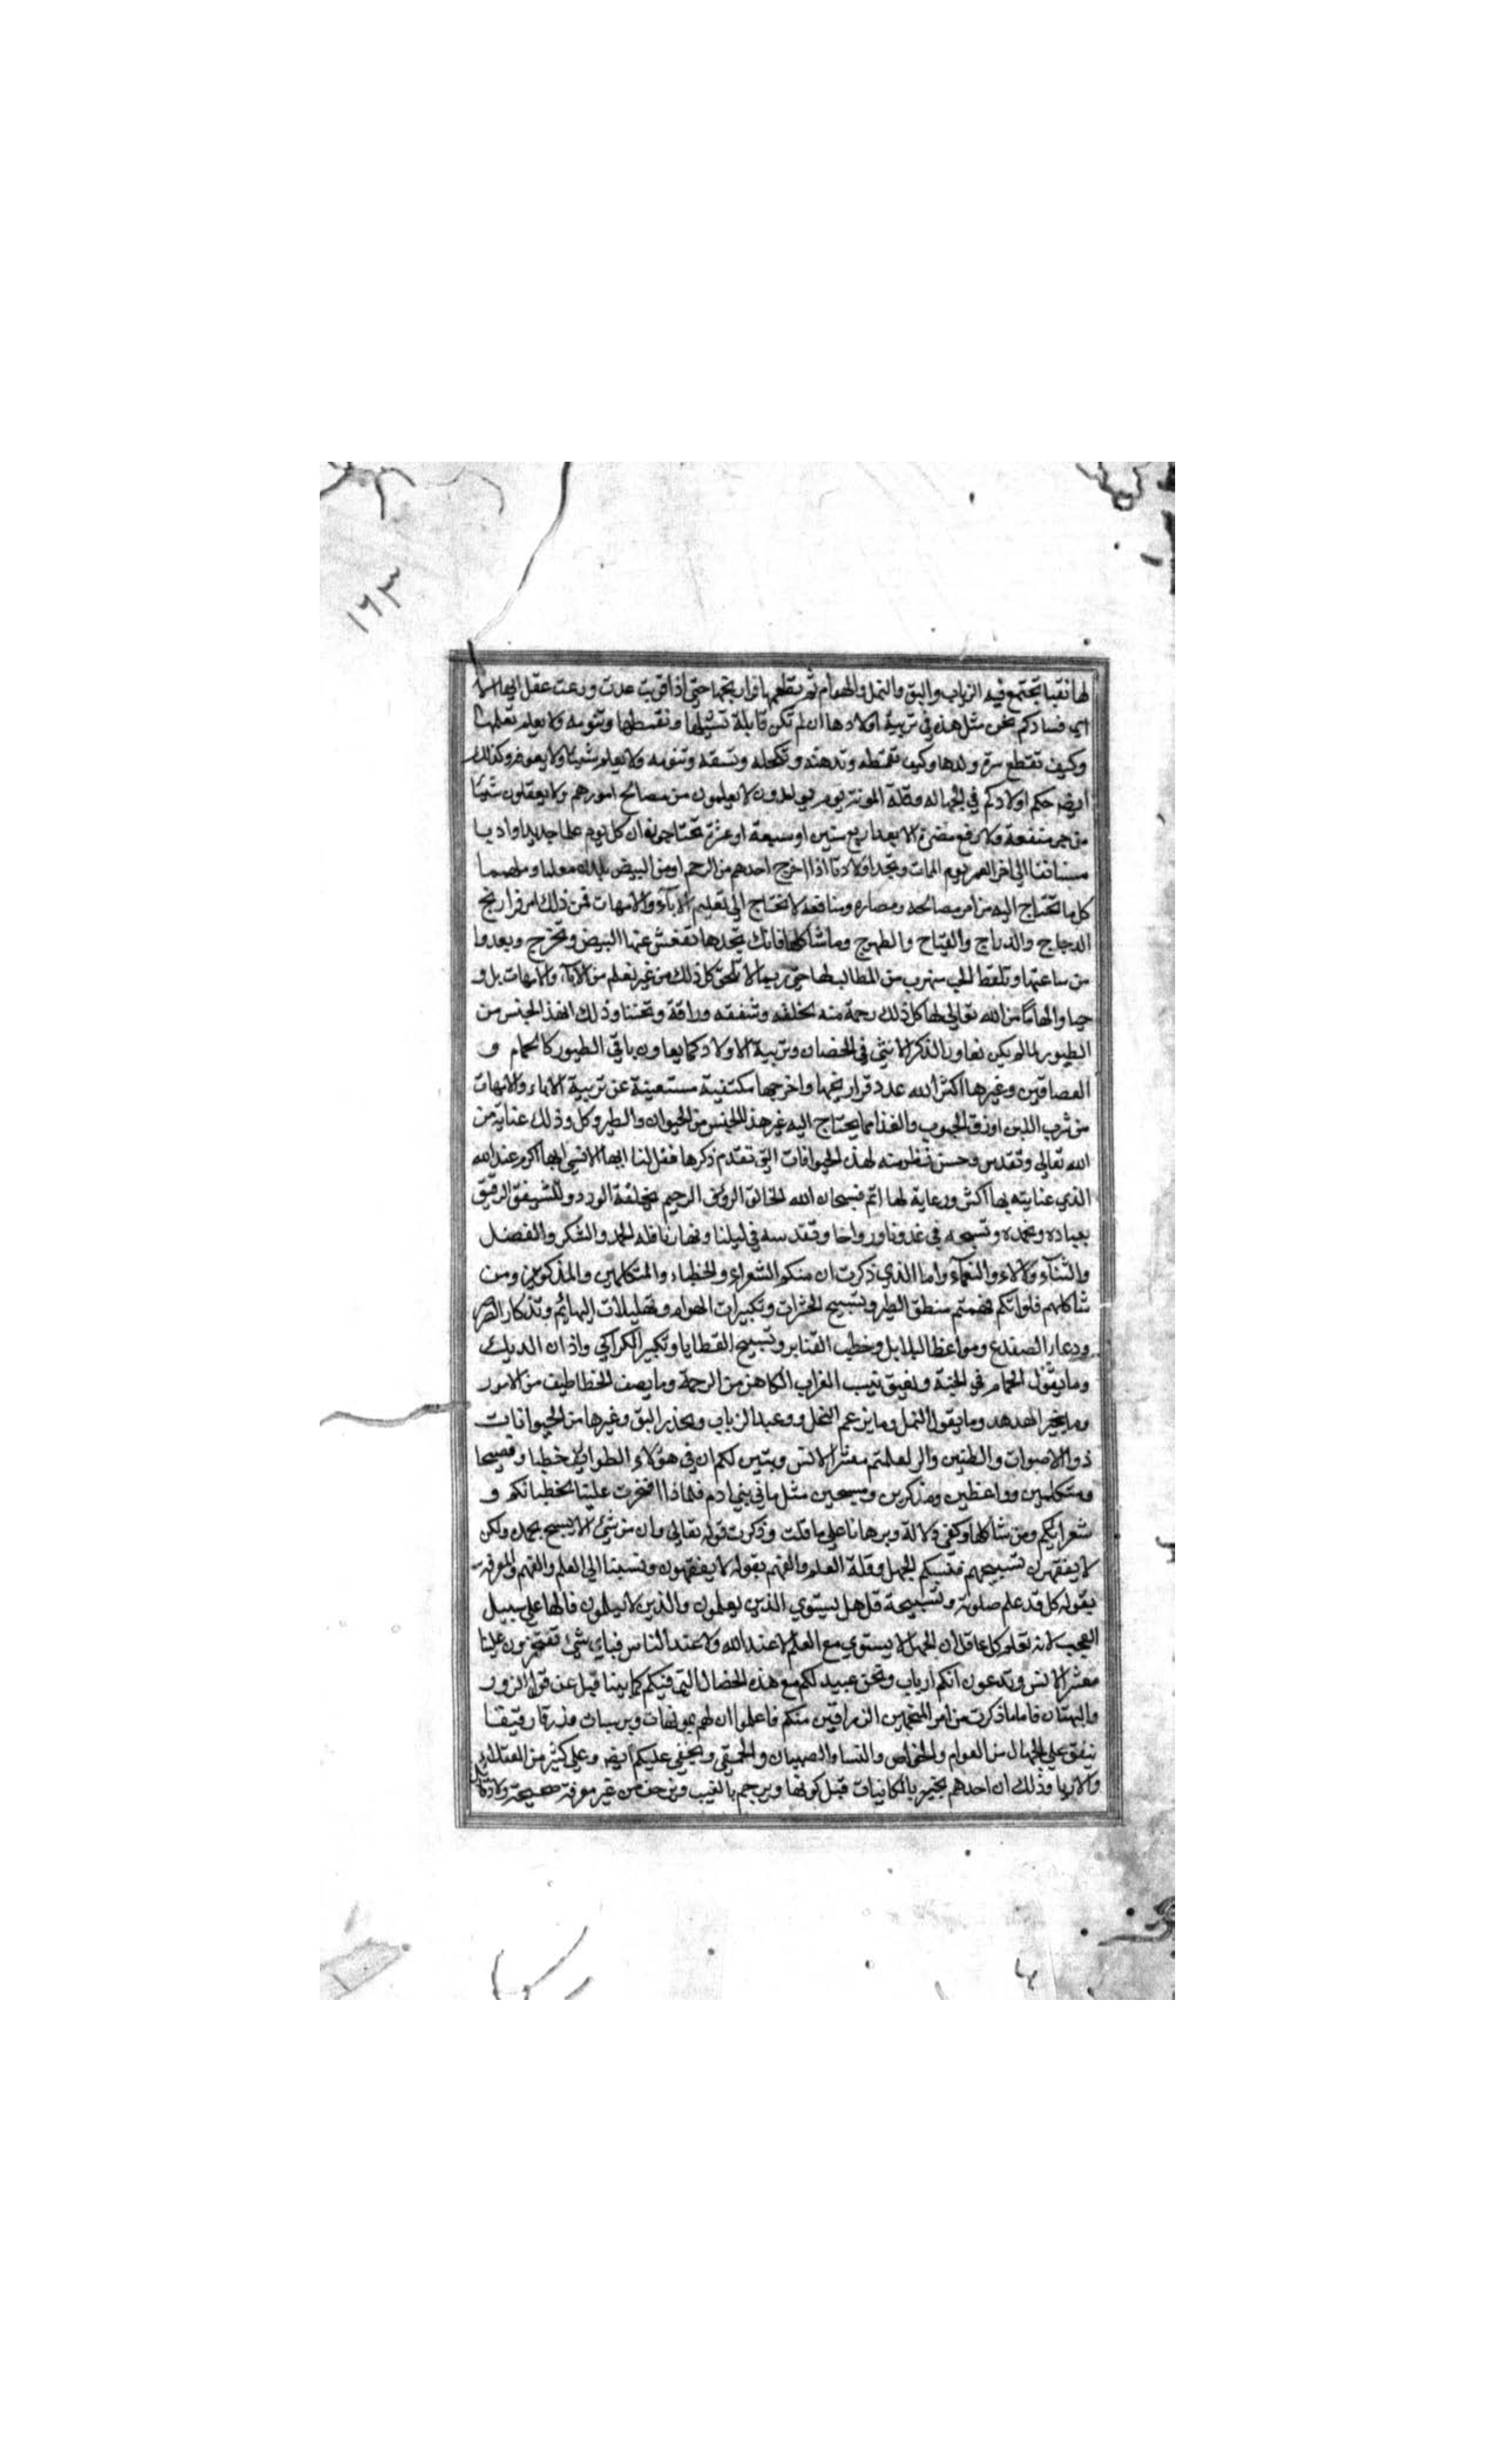 ١٦٣
لها نقبا تجتمع فيه الذباب والبق والنمل والهوام ثم تطعمها فراريخها حتى اذا قويت عدت ورعت عقل ايها الا
اي فسادكم يحسن مثل هذه في تربية اولادها ان لم تكن قابلة تشيلها وتقمطها وتنومه ولا يعلم تعلمها
وكيف تقطع سرة ولدها وكيف تقمطه وتدهنه وتكحله وتسقه وتنومه ولا يعلم شيئا ولا يعرفه وكذلك
ايضا حكم اولادكم في الجهالة وقلة المونة يوم يولدون لا يعلمون من مصالح امورهم ولا يعقلون شيئا
من جر منفعة ولا رفع مضرة الا بعد اربع سنين او سبعة او عشرة يحتاجون ان كل يوم علما جديدا وادبا
مستانفا الى اخر العمر يوم الممات وتجد اولادنا اذا اخرج احدهم من الرحم او من البيض يكون معلما وملهما
كل ما تحتاج اليه من امر مصالحه ومضاره ومنافعه لا تحتاج الى تعليم الآباء والامهات فمن ذلك امر فراريج
الدجاج والدراج والقباج والطيهوج وما شاكلها فانك تجدها تفقش عنها البيض وتخرج وتعدوا
من ساعتها وتلقط الحب تهرب من المطالب لها حتى ربما لا تلحق كل ذلك من غير تعلم من الآباء والامهات بل و
حيا والهاما من الله تعالى لها كل ذلك رحمة منه بخلقه وشفقه ورافة وتحننا وذلك ان هذا الجنس من
الطيور لما لم يكن تعاون الذكر الانثى في الحضان وتربية الاولاد كما يعاون باقي الطيور كالحمام و
العصافير وغيرها اكثر الله عدد فراريخها واخرجها مكتفية مستغنية عن تربية الاباء والامهات
من شرب اللبن او زق الحبوب والغذا مما يحتاج اليه غير هذا الجنس من الحيوان والطير وكل وذلك عناية من
الله تعالى وتقدس وحسن نظر منه لهذه الحيوانات التي تقدم ذكرها فقل لنا ايها الانسي ايها اكرم عند الله
الذي عنايته بها اكثر ورعاية لها اتم فسبحان الله الخالق الرؤف الرحيم بخلقه الودود الشفيق الرفيق
بعباده ونحمده ونسبحه في غدونا ورواحنا ونقدسه في ليلنا ونهارنا فله الحمد والشكر والفضل
والثناء والآلاء والنعماء واما الذي ذكرت ان منكم الشعراء والخطباء والمتكلمين والمذكورين ومن
شاكلهم فلو انكم فهمتم منطق الطير وتسبيح الحشرات وتكبيرات الهوام وتهليلات البهائم وتذكار الصر
ودعاء الضفدع ومواعظ البلابل وخطب القنابر وتسبيح القطايا وتكبير الكراكي واذان الديك
وما يقول الحمام في الجنة ونغيق نيب الغراب الكاهن من الرحمة وما يصف الخطاطيف من الامور
وما يخبر الهدهد وما يقول النمل وما يزعم النحل ووعيد الزباب ويحذر البق وغيرها من الحيوانات
ذو الاصوات والطنين والز لعلمتم معشر الانس وتبين لكم ان في هؤلاء الطوايف خطبا وفصيحا
ومتكلمين وواعظين ومذكرين ومسبحين مثل ما في بني ادم فلماذا افتخرت علينا بخطبائكم و
شعرائكم ومن شاكلها وكفى دلالة وبرهانا على ما قلت وذكرت قوله تعالى وان من شيئ الا يسبح بحمده ولكن
لا يفقهون تسبيحهم فنسبكم للجهل وقلة العلم والفهم بقوله لا يفقهون ونسبنا الى العلم والفهم والمعرفة
بقوله كل قد علم صلوته وتسبيحه قل هل يستوي الذين يعلمون والذين لا يعلمون قالها على سبيل
التعجب لانه يعلم كل عاقل ان الجهل لا يستوي مع العلم لا عند الله ولا عند الناس فباي شيئ تفتخرون علينا
معشر الانس وتدعون انكم ارباب ونحن عبيد لكم مع هذه الخصال التي فيكم كما بينا قبل عن قول الزور
والبهتان فاما ما ذكرت من امر المنجمين الزراقين منكم فاعلموا ان لهم تمويهات وتربيسات وزرقا رقيقا
ينفق على الجهال من العوام والخواص والنسا والصبيان والحمقى ويخفى عليكم ايضا وعلى كثير من العقلاء
والادبا وذلك ان احدهم يخبر بالكائنات قبل كونها ويرجم بالغيب ويزحف من غير معرفة صحيحة ولا دلائل